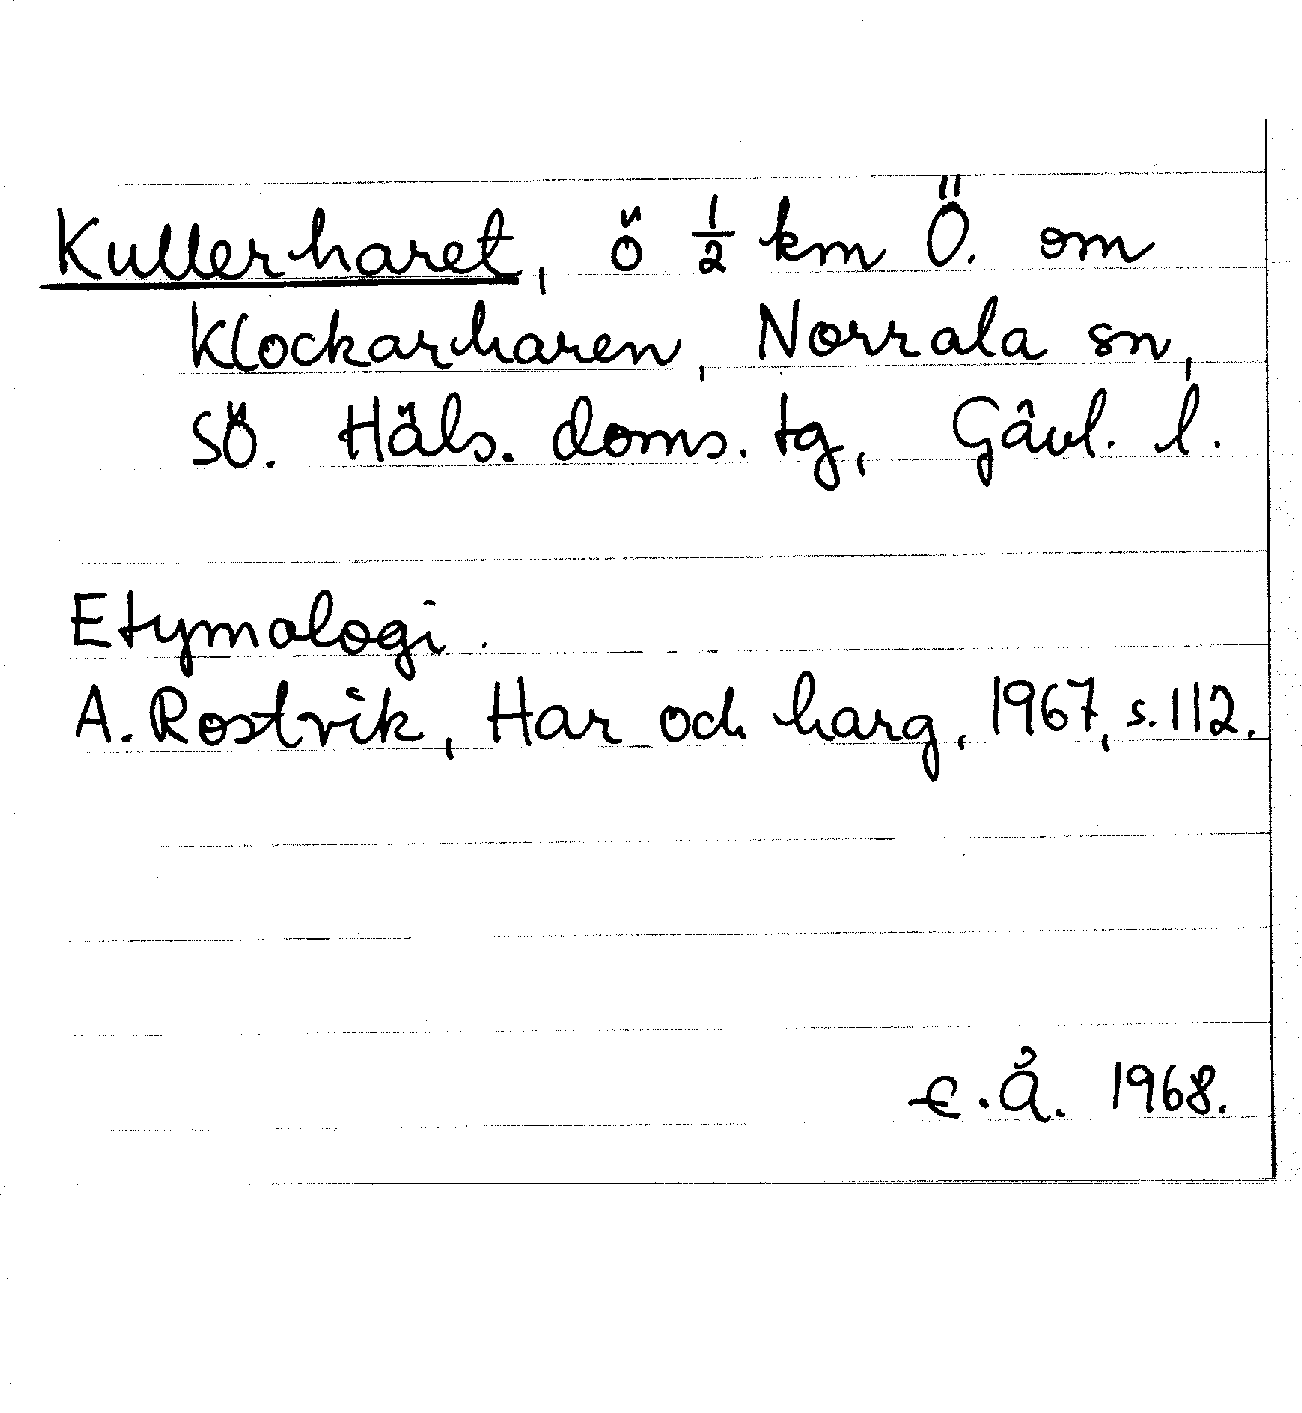 Kullerharet, ö ½ km Ö. om
Klockarharen, Norrala sn,
SÖ. Häls. doms. tg, Gävl. l.
Etymologi.
A. Rostvik, Har och harg, 1967, s. 112.
E.Å. 1968.